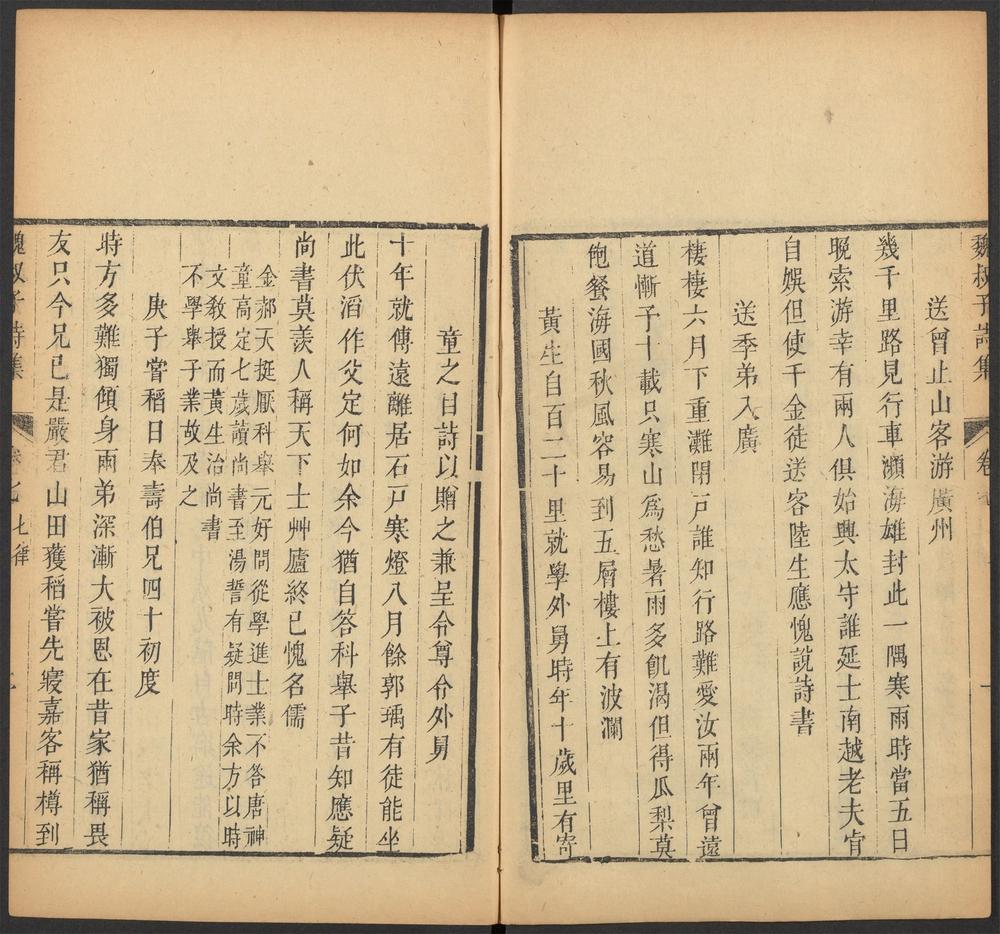 魏叔子詩集 卷七
送曾止山客游廣州
幾千里路見行車瀕海雄封此一隅寒雨時當五日
晚索游幸有兩人俱始興太守誰延士南越老夫肎
自娛但使千金徒送客陸生應愧說詩書
送季弟入廣
棲棲六月下重灘閉戸誰知行路難愛汝兩年曾遠
道慚予十載只寒山爲愁暑雨多飢渴但得瓜梨莫
飽餐海國秋風容易到五層樓上有波瀾
黃生自百二十里就學外舅時年十歲里有寄
童之目詩以贈之兼呈令尊令外舅
十年就傳遠離居石戸寒燈八月餘郭瑀有徒能坐
此伏滔作父定何如余今猶自答科舉子昔知應疑
尚書莫羨人稱天下士艸廬終已愧名儒
金郝天挺厭科舉元好問從學進士業不答唐神
童高定七歲讀尚書至湯誓有疑問時余方以時
文敎授而黃生治尚書
不學舉子業故及之
庚子嘗稻日奉壽伯兄四十初度
時方多難獨傾身兩弟深漸大被恩在昔家猶稱畏
友只今兄已是嚴君山田獲稻嘗先寢嘉客稱樽到
魏叔子詩集 卷七 七律